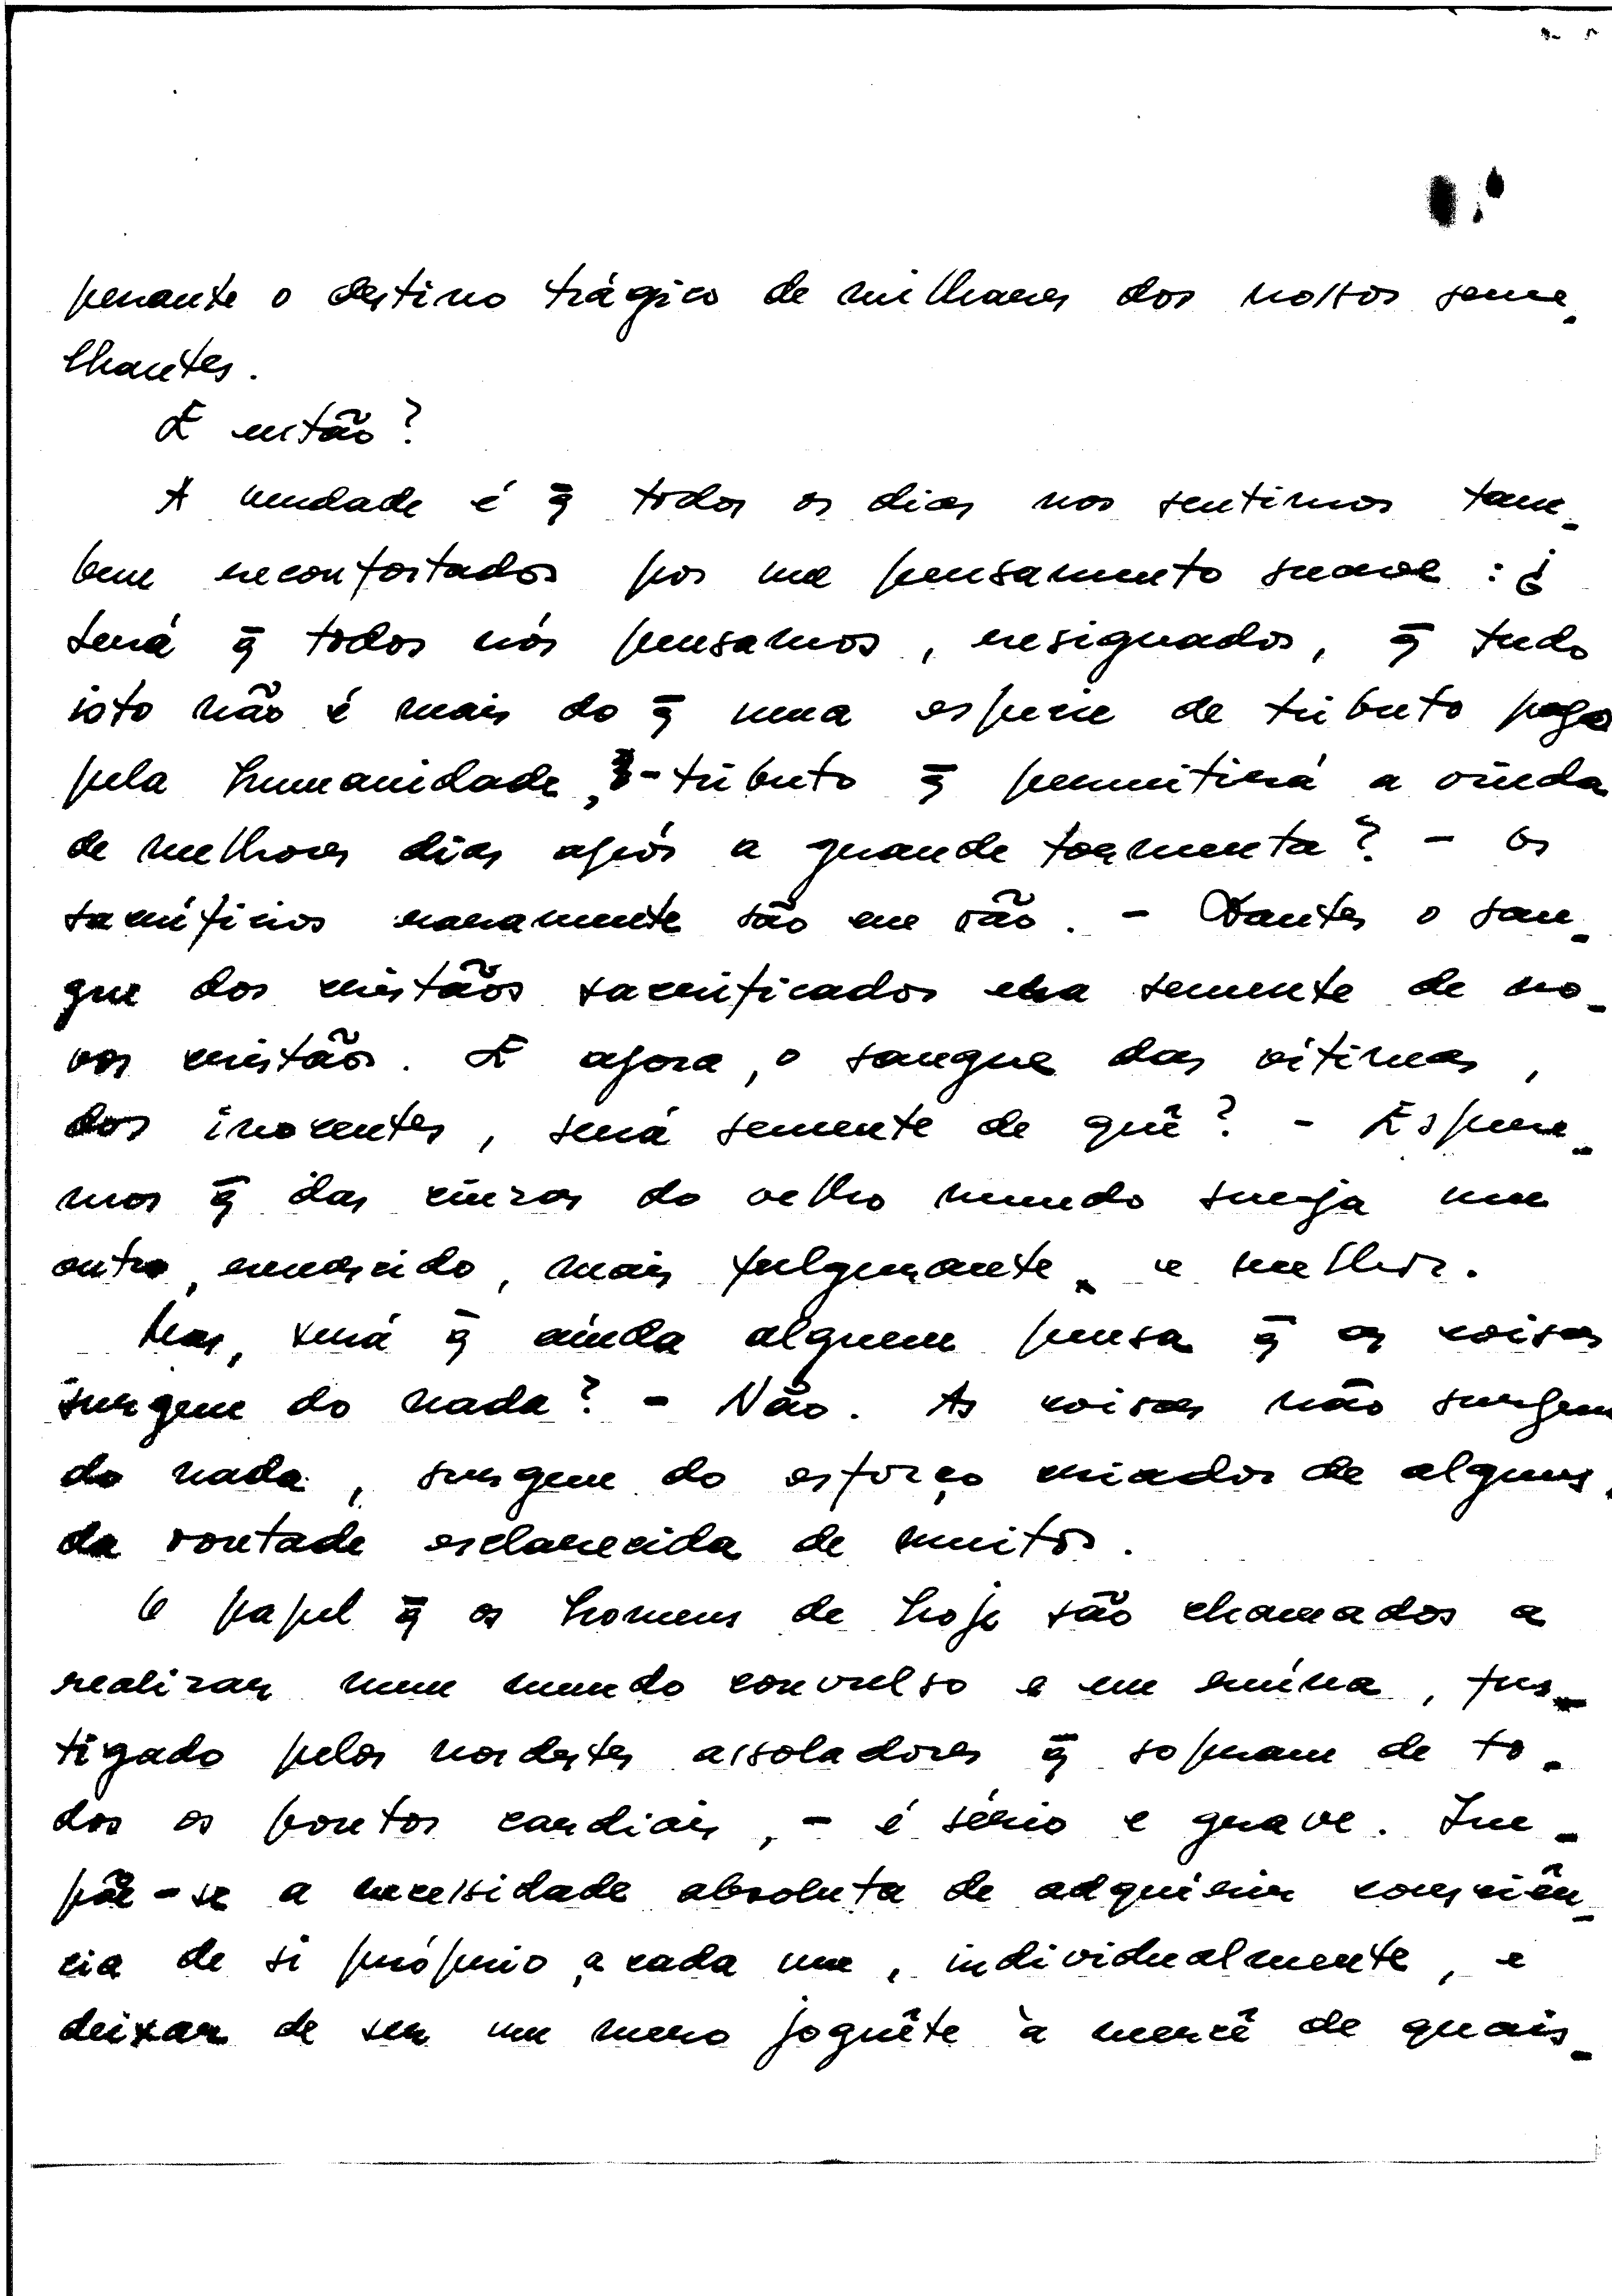 perante o destino trágico de milhares dos nossos seme-
lhantes.
E então?
A verdade é q̄ todos os dias nos sentimos tam-
bem reconfortados por um pensamento suave : ¿
Será q̄ todos nós pensamos, resignados, q̄ tudo
isto não é mais do q̄ uma espécie de tributo pago
pela humanidade, - tributo q̄ permitirá a vinda
de melhores dias após a grande tormenta? - Os
sacrifícios raramente são em vão. - Dantes o san-
gue dos cristãos sacrificados era semente de no-
vos cristãos. E agora, o sangue das vitimas,
dos inocentes, será semente de quê? - Espere-
mos q̄ das cinzas do velho mundo surja um
outro, renascido, mais fulgurante, e melhor.
Mas, será q̄ ainda alguem pensa q̄ as coisas
surgem do nada? - Não. As coisas não surgem
do nada, surgem do esforço criador de alguns,
da vontade esclarecida de muitos.
O papel q̄ os homens de hoje são chamados a
realizar num mundo convulso e em ruína, fus-
tigado pelos nordestes assoladores q̄ sopram de to-
dos os pontos cardiais, - é sério e grave. Im-
põe-se a necessidade absoluta de adquirir consciên-
cia de si próprio, a cada um, individualmente, e
deixar de ser um mero joguête à mercê de quais-